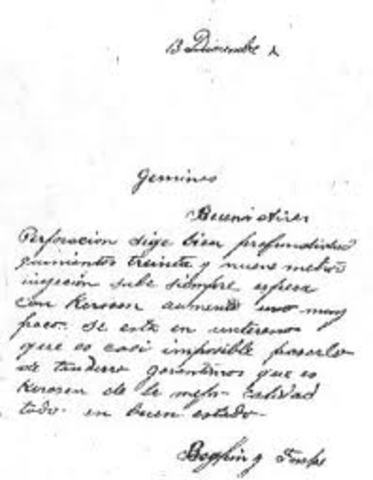 13 Diciembre
Geminis
Buenos Aires
Perforacion sige bien profundidad
quinientos treinta y nueve metros
inyeción sube siempre espesa
con Kerosen aumenta muy
poco. Se esta en
que es casi imposible pararlo
garantimos que es
Kerosen de la mejor calidad
todo en buen estado.